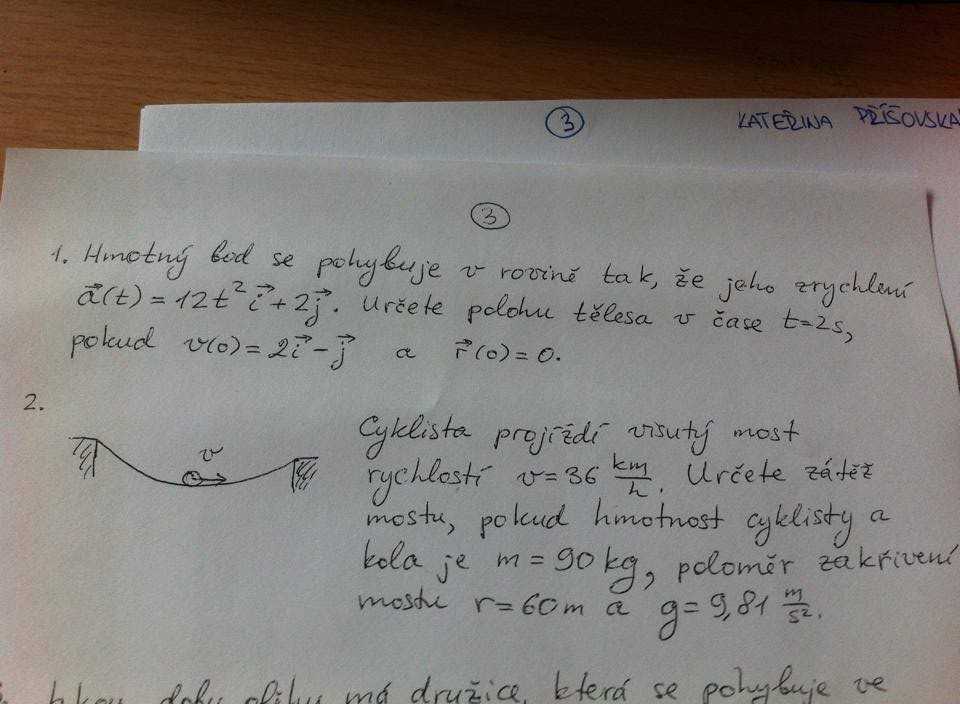 3 KATEŘINA PŘÍŠOVSKÁ
3
1. Hmotný bod se pohybuje v rovině tak, že jeho zrychlení
a⃗(t) = 12t² i⃗ + 2j⃗. Určete polohu tělesa v čase t=2s,
pokud v(0) = 2i⃗ - j⃗ a r⃗(0) = 0.
2.
v
Cyklista projíždí visutý most
rychlostí v = 36 km/h. Určete zátěž
mostu, pokud hmotnost cyklisty a
kola je m = 90 kg, poloměr zakřivení
mostu r = 60m a g = 9,81 m/s².
dobu oběhu má družice, která se pohybuje ve